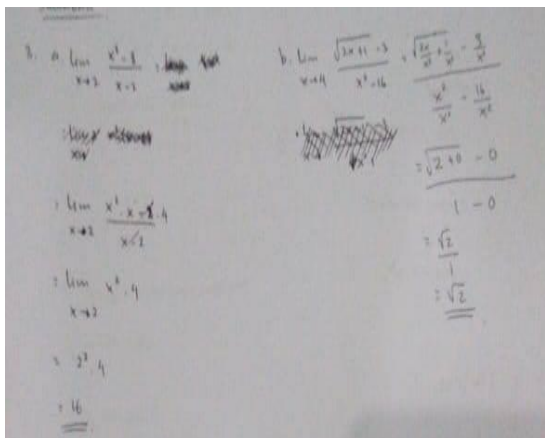 3. a. lim x→2 x³ - 8 / x - 2
= lim x→2 x² . x - 2 . 4 / x - 2
= lim x→2 x² . 4
= 2² . 4
= 16
b. lim x→4 √2x+1 - 3 / x² - 16 = √2x/x² + 1/x² - 3/x² / x²/x² - 16/x²
= √2+0 - 0 / 1 - 0
= √2 / 1
= √2